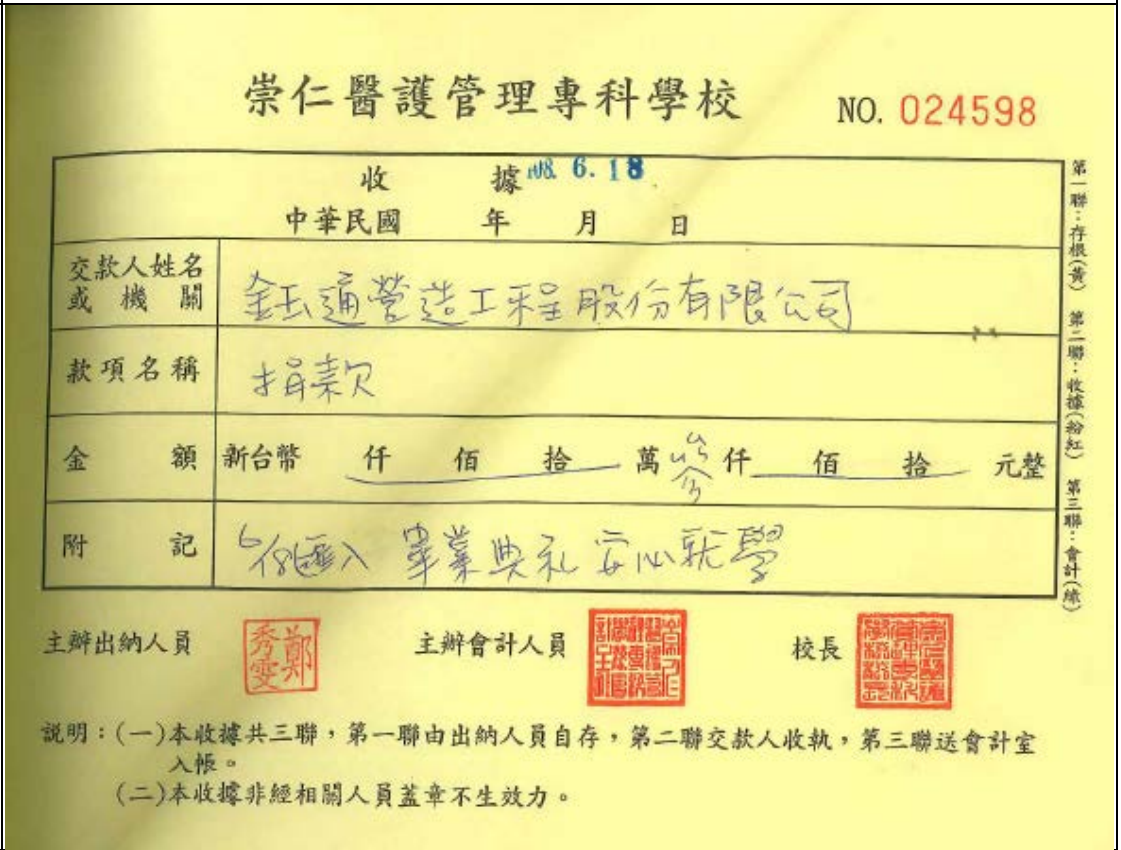 崇仁醫護管理專科學校
NO. 024598
收 據 108. 6. 18
中華民國 年 月 日
交款人姓名或機關 鈺通營造工程股份有限公司
款項名稱 捐款
金 額 新台幣 仟 佰 拾 萬 參 仟 佰 拾 元整
附 記 6/18匯入 畢業典礼 安心就學
第一聯：存根(黃) 第二聯：收據(粉紅) 第三聯：會計(綠)
主辦出納人員 鄭秀雯 主辦會計人員 校長
說明：(一)本收據共三聯，第一聯由出納人員自存，第二聯交款人收執，第三聯送會計室
入帳。
(二)本收據非經相關人員蓋章不生效力。